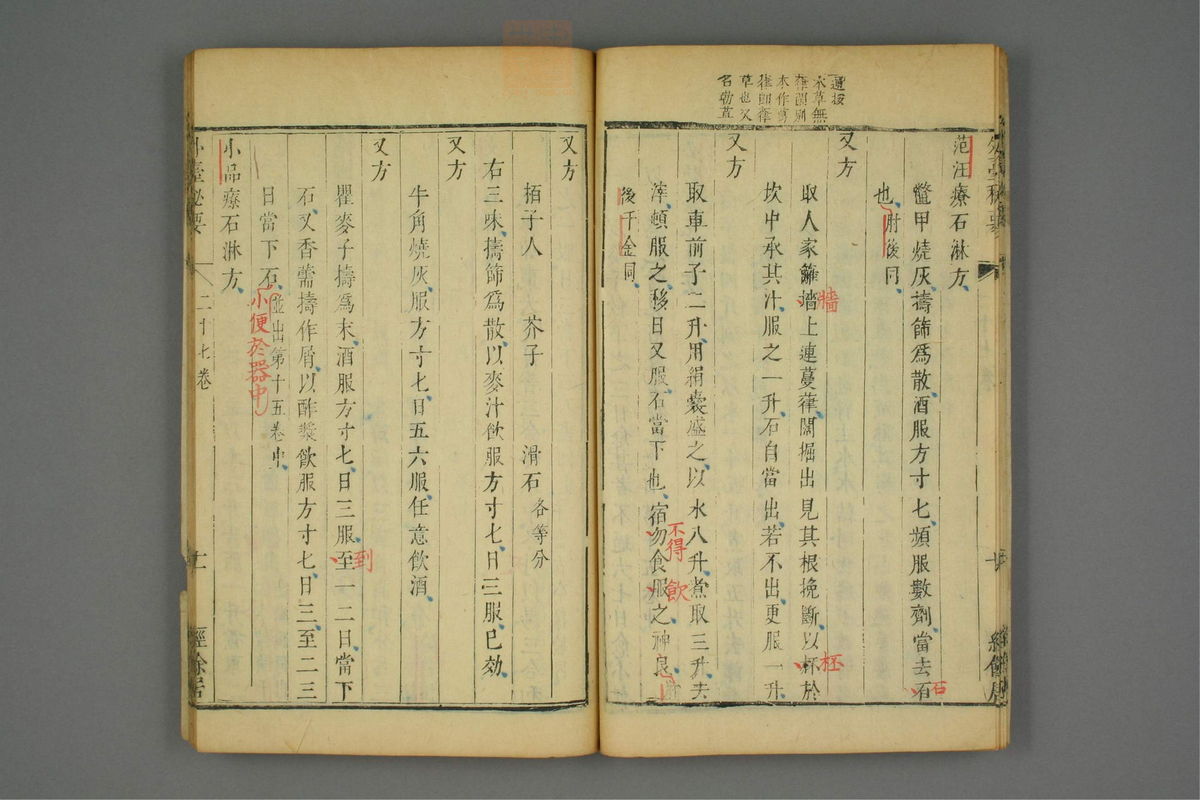 范汪療石淋方
鼈甲燒灰擣篩爲散酒服方寸七頻服數劑當去石
石
也肘後同
又方
取人家籬墻上連蔓葎闊掘出見其根挽斷以杯於
牆
杯
坎中承其汁服之一升石自當出若不出更服一升
又方
取車前子二升用絹囊盛之以水八升煮取三升去
滓頓服之移日又服石當下也宿勿食服之神良
不得
飲
後千金同
本草無
名勒草
二十七卷
又方
栢子人 芥子 滑石各等分
右三味擣篩爲散以麥汁飲服方寸七日三服已効
又方
牛角燒灰服方寸七日五六服任意飲酒
又方
瞿麥子擣爲末酒服方寸七日三服至一二日當下
到
石又香薷擣作屑以酢漿飲服方寸七日三至二三
日當下石並出第十五卷中
小便於器中
小品療石淋方
外臺秘要
二十七卷
十一
經餘居